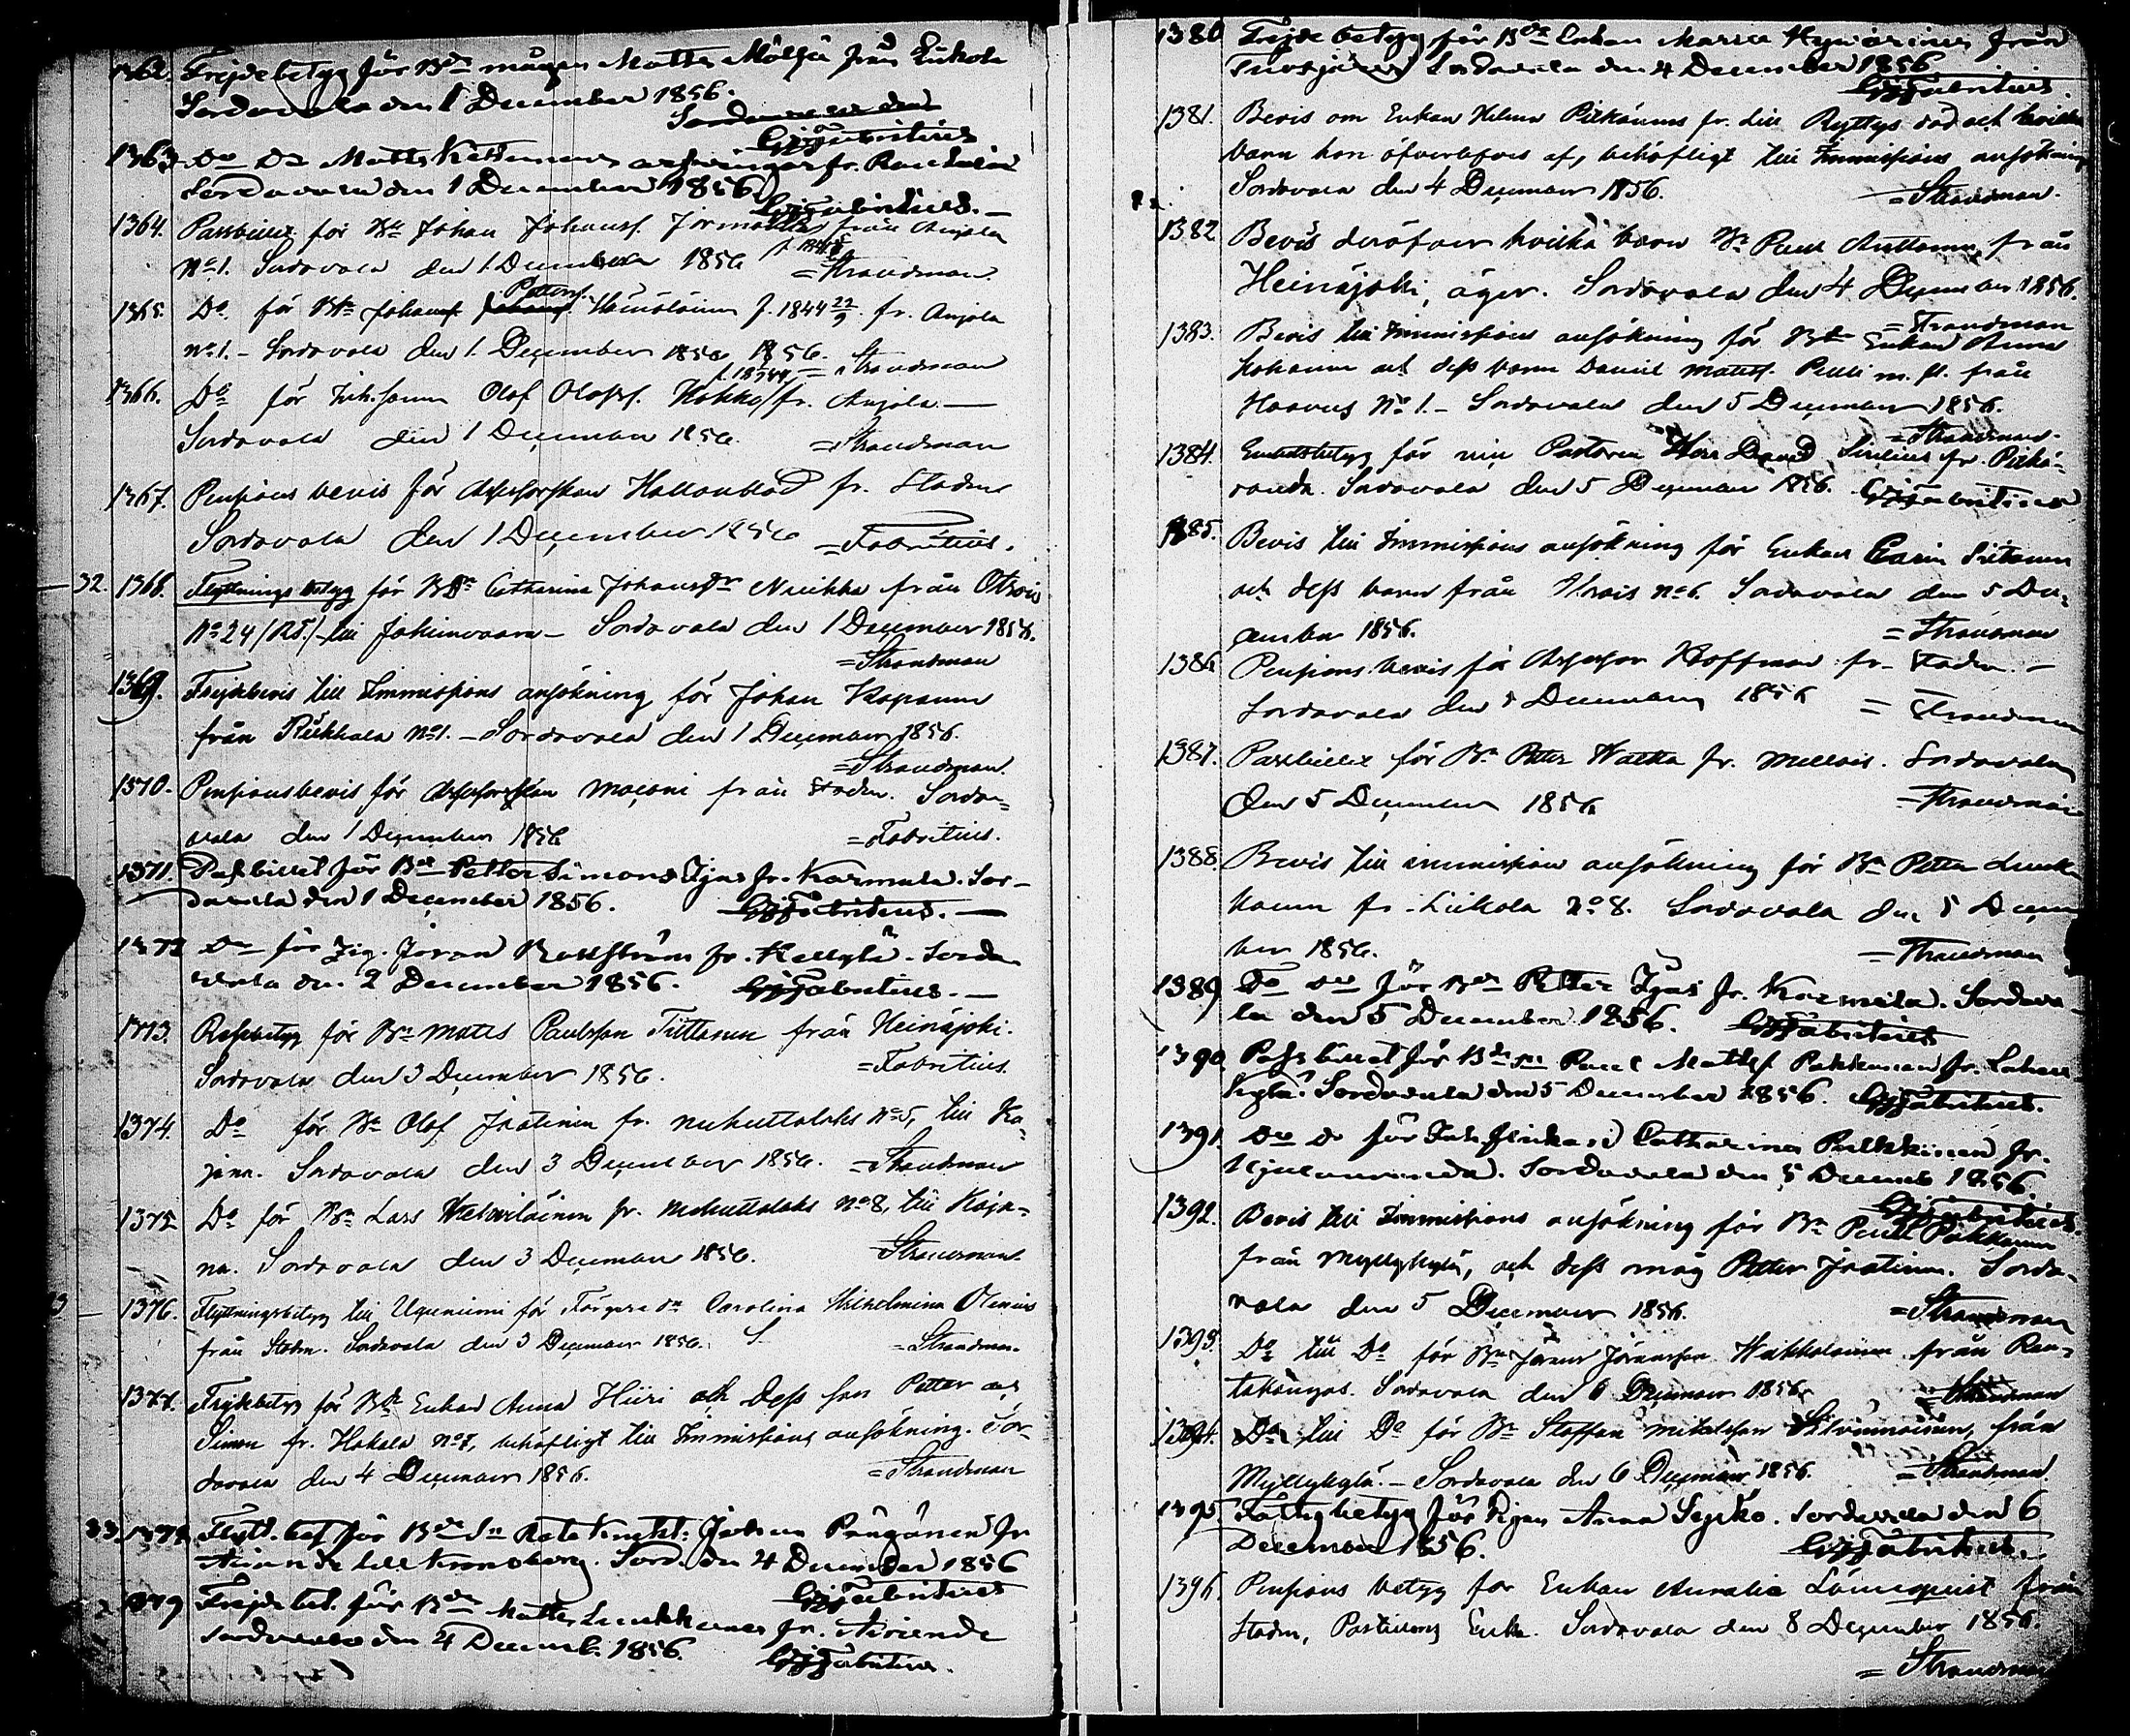 1362. Frejdebetyg för Bde mågen Matts Mölsä från Liikola
Sordavala den 1 December 1856.
Sordavala den
GJFabritius
1363 Do Do Matts Kettunens arfvingar fr. Rautalax
Sordavala den 1 December 1856.
GJFabritius. —
1364. Passbillet för Bn Johan Johansf. Jormalain från Anjala
No 1. Sordavala den 1 December 1856 =Strandman
1365. Do för Bn Johan Pettersf. Heinoläinen f. 1844 22/9 fr. Anjala
No 1. – Sordavala den 1. December 1856 = Strandman
1366. Do för Inh. sonen Olof Olofsf. Kokko fr. Anjala —
Sordavala den 1 December 1856. =Strandman
1367. Pensions bevis för Assessorskan Hallonblad fr. Staden
Sordavala den 1 December 1856 =Fabritius.
32. 1368. Flyttnings betyg för BDr Catharina Johansdr Nuikka från Otsois
No 24 /RS./ till Jakimvaara – Sordavala den 1 December 1856.
=Strandman
1369. Frejdebevis till Immissions ansökning för Johan Kapanen
från Riekkala No 1. – Sordavala den 1 December 1856.
=Strandman.
1370. Pensionsbevis för Assessorskan Maconi från Staden. Sorda-
vala den 1 December 1856 =Fabritius.
1371. Passbillet för Bde Petter Simons Ijäs fr. Karmala. Sor-
davala den 1 December 1856. GJFabritius. —
1372 Do för Zig. Jöran Bollström fr. Kellylä. Sorda
vala den 2 December 1856. GJFabritius. —
1373. Resebetyg för Bn Matts Paulsson Tiittanen från Heinäjoki.
Sordavala den 3 December 1856. =Fabritius.
1374. Do för Bn Olof Jaatinen fr. Mekuttalaks No 5, till Ka-
jana. Sordavala den 3 December 1856. =Strandman
1375. Do för Bn Lars Watavilainen fr. Mekuttalaks No 8, till Kaja-
na. Sordavala den 3 December 1856. =Strandman.
1376. Flyttningsbetyg till Uguniemi för Färgare dr Carolina Wilhelmina Olenius
från Staden. Sordavala den 3 December 1856. =Strandman.
1377. Frejdebetyg för Bde Enkan Anna Hiiri och dess son Petter och
Simon fr. Hakala No 7, behöfligt till Immissions ansökning. Sor-
davala den 4 December 1856. =Strandman
33 1378 Flytt. bet. för Bde Sn Rote Knekt: Johan Pöngänen fr
till Kronoborg. Sord. den 4 December 1856
GJFabritius
1379 Frejde bet. för Bde Matts Luukkanen fr. Airiende
Sordavala den 4 Decemb. 1856. GJFabritius.
1380 Frejde betyg för Bde Enkan Maria Hyvärinen från
Suosjärvi Sordavala den 4 December 1856
GJFabritius.
1381. Bevis om Enkan Helena Pitkänens fr. Lill Ryttys död och hvilka
barn hon öfverlefves af, behöfligt till Immissions ansökning
Sordavala den 4 December 1856. =Strandman.
1382 Bevis deröfver hvilka barn Bn Paul Anttonen från
Heinäjoki, äger. Sordavala den 4 December 1856.
=Strandman
1383. Bevis till Immissions ansökning för Bde Enkan Anna
Hakanen och dess barn Daniel Mattsf. Pulli m. fl. från
Haavus No 1. – Sordavala den 5 December 1856.
=Strandman.
1384. Embetsbetyg för vice Pastoren Herr David Sirelius fr. Pitkä-
randa. Sordavala den 5 December 1856. GJFabritius
1385. Bevis till Immissions ansökning för Enkan Carin Siitonen
och dess barn från Otsois No 6. Sordavala den 5 De-
cember 1856. =Strandman
1386 Pensions bevis för Assessor Hoffman fr. Staden. –
Sordavala den 5 December 1856 = Strandman
1387. Passbillet för Bn Petter Watka fr. Mellois. Sordavala
den 5 December 1856 =Strandman
1388. Bevis till immission ansökning för Bn Petter Luuk-
kanen fr. Liikola No 8. Sordavala den 5 Decem
ber 1856. =Strandman
1389 Do Do för Bde Petter Ijäs fr. Karmala. Sordava
la den 5 December 1856. GJFabritius
1390. Passbillet för Bde Sn Paul Mattsf Pakkanen fr. Lahen-
kylä. Sordavala den 5 December 1856. GJFabritius.
1391. Do Do för Inh. flickan Catharina Pulkkinen fr.
Sordavala den 5 Decemb 1856.
GJFabritius.
1392. Bevis till Immissions ansökning för Bn Paul Pakkanen
från Myllykylä, och dess måg Petter Jaatinen. Sorda-
vala den 5 December 1856. =Strandman
1393. Do till Do för Bn Jöran Jöransson Wäkkoläinen från Rau-
takangas. Sordavala den 6 December 1856. =Strandman
1394. Do till Do för Bn Staffan Mikelsson från
Myllykylä. – Sordavala den 6 December 1856. =Strandman.
1395. Fattigbetyg för Pigan Anna Lepkö. Sordavala den 6
December 1856. GJFabritius.
1396. Pensions betyg för Enkan Amalia Lönnqvist från
Staden, Pastors Enka. Sordavala den 8 December 1856.
= Strandman